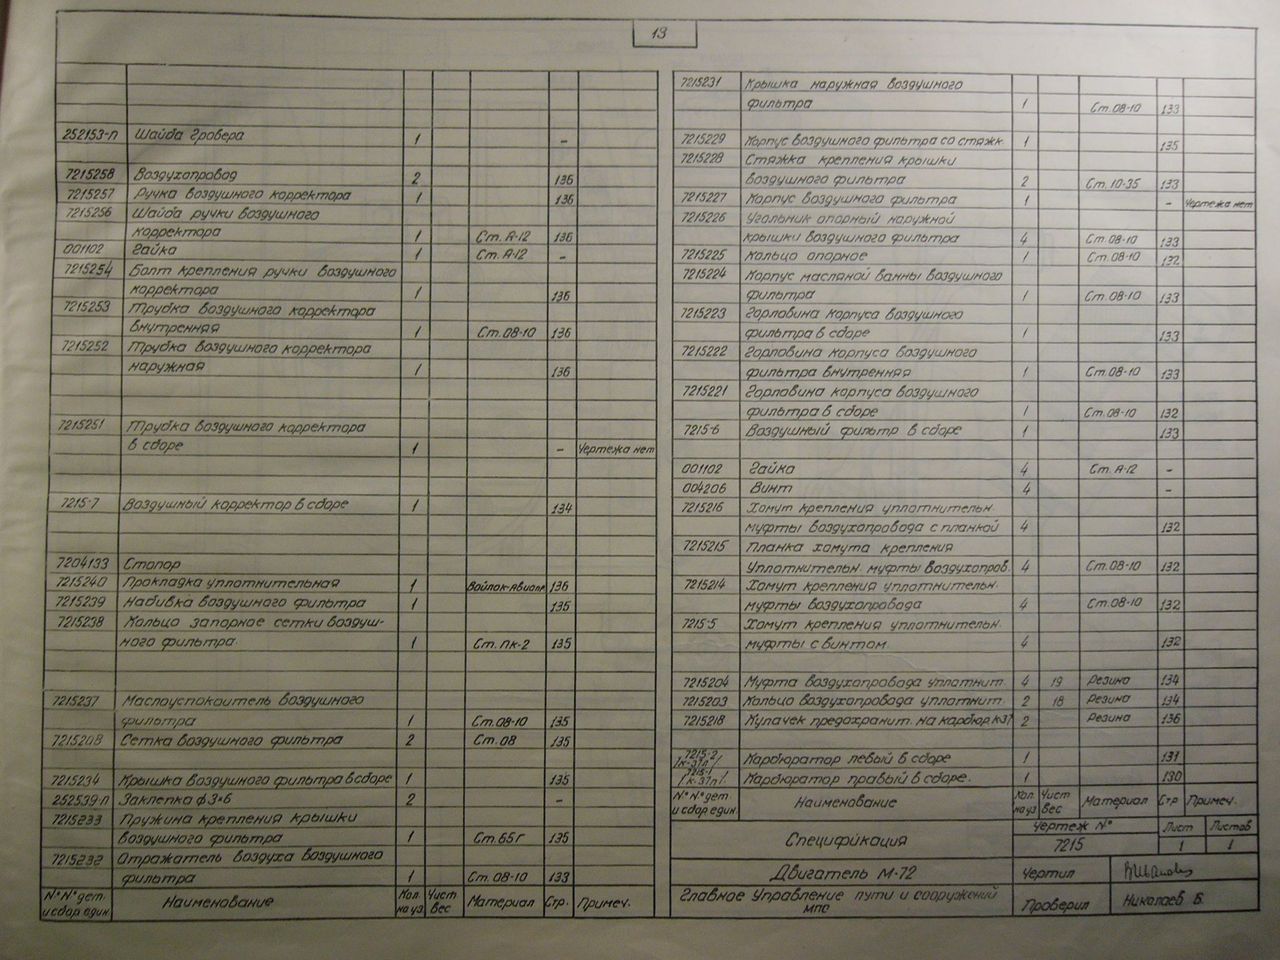 13
252153-п Шайба Гровера 1 –
7215258 Воздухопровод 2 136
7215257 Ручка воздушного корректора 1 136
7215256 Шайба ручки воздушного
корректора 1 Ст. А-12 136
001102 Гайка 1 Ст. А-12 –
7215254 Болт крепления ручки воздушного
корректора 1 136
7215253 Трубка воздушного корректора
внутренняя 1 Ст.08-10 136
7215252 Трубка воздушного корректора
наружная 1 136
7215251 Трубка воздушного корректора
в сборе 1 – Чертежа нет
7215-7 Воздушный корректор в сборе 1 134
7204133 Стопор
7215240 Прокладка уплотнительная 1 136
7215239 Набивка воздушного фильтра 1 135
7215238 Кольцо запорное сетки воздуш-
ного фильтра. 1 Ст. пк-2 135
7215237 Маслоуспокоитель воздушного
фильтра 1 Ст.08-10 135
7215208 Сетка воздушного фильтра 2 Ст.08 135
7215234 Крышка воздушного фильтра в сборе 1 135
252539-п Заклепка ф3×6 2 –
7215233 Пружина крепления крышки
воздушного фильтра 1 Ст.65г 135
7215232 Отражатель воздуха воздушного
фильтра 1 Ст.08-10 133
N°N° дет. и сбор. един. Наименование Кол на уз. Чист вес Материал Стр. Примеч.
7215231 Крышка наружная воздушного
фильтра 1 Ст.08-10 133
7215229 Корпус воздушного фильтра со стяжк. 1 135
7215228 Стяжка крепления крышки
воздушного фильтра 2 Ст.10-35 133
7215227 Корпус воздушного фильтра 1 – Чертежа нет
7215226 Угольник опорный наружной
крышки воздушного фильтра 4 Ст.08-10 133
7215225 Кольцо опорное 1 Ст.08-10 132
7215224 Корпус масляной ванны воздушного
фильтра 1 Ст.08-10 133
7215223 Горловина корпуса воздушного
фильтра в сборе 1 133
7215222 Горловина корпуса воздушного
фильтра внутренняя 1 Ст.08-10 133
7215221 Горловина корпуса воздушного
фильтра в сборе 1 Ст.08-10 132
7215-6 Воздушный фильтр в сборе 1 133
001102 Гайка 4 Ст. А-12 –
004206 Винт 4 –
7215216 Хомут крепления уплотнительн.
муфты воздухопровода с планкой 4 132
7215215 Планка хомута крепления
уплотнительн. муфты воздухопров. 4 Ст.08-10 132
7215214 Хомут крепления уплотнительн.
муфты воздухопровода 4 Ст.08-10 132
7215-5 Хомут крепления уплотнительн.
муфты с винтом 4 132
7215204 Муфта воздухопровода уплотнит. 4 19 Резина 134
7215203 Кольцо воздухопровода уплотнит. 2 18 Резина 134
7215218 Кулачек предохранит. на карбюр. К37 2 Резина 136
7215-2 /К-37л/ Карбюратор левый в сборе 1 131
7215-1 /К-37п/ Карбюратор правый в сборе. 1 130
N°N° дет. и сбор един. Наименование Кол. на уз. Чист вес Материал Стр Примеч.
Спецификация Чертеж N° 7215 Лист 1 Листов 1
Двигатель М-72 Чертил
Главное Управление пути и сооружений МПС Проверил Николаев Б.